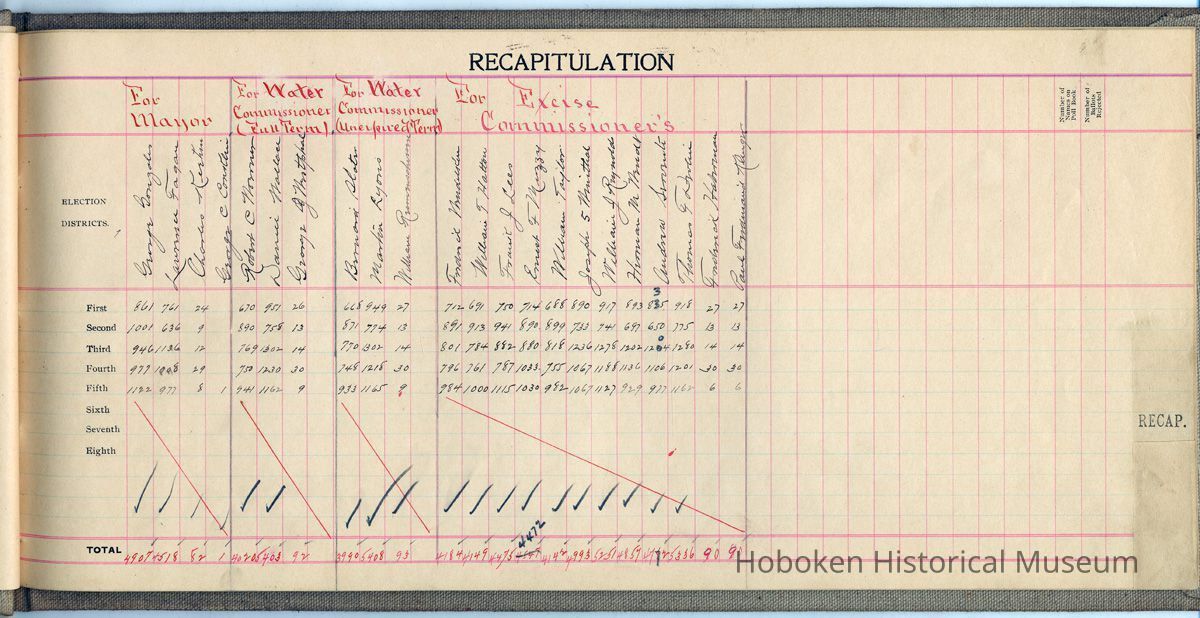 RECAPITULATION
For Mayor
For Water Commissioner (Full Term)
For Water Commissioner (Unexpired Term)
For Excise Commissioner's
Number of Names on Poll Book.
Number of Ballots Rejected
ELECTION DISTRICTS.
George Gonzales
Lawrence Fagan
Charles
George C
Robert C
Daniel Wallace
George
Bernard Slater
Martin Lyons
William
Frederick
William T Hatton
Francis J Lees
Ernest F Muzzy
William Taylor
Joseph S
William J Reynolds
Herman M
Andrew
Thomas F Devlin
Frederick
Paul Ferdinand
First 861 761 24 670 951 26 668 949 27 712 691 750 714 688 890 917 893 835 918 27 27
Second 1001 636 9 890 758 13 871 774 13 891 913 941 890 899 733 741 697 650 775 13 13
Third 946 1136 12 769 1302 14 770 1302 14 801 784 882 880 818 1236 1278 1202 1280 14 14
Fourth 977 1008 29 750 1230 30 748 1218 30 796 761 787 1033 755 1067 1188 1136 1106 1201 30 30
Fifth 1122 977 8 1 941 1162 9 933 1165 9 984 1000 1115 1030 982 1067 1127 929 977 1162 6 6
Sixth
Seventh
Eighth
4472
TOTAL 4907 4518 82 1 4020 5403 92 3990 5408 93 4184 4149 4475 4142 4993 5251 4857 5336 90 90
RECAP.
Hoboken Historical Museum